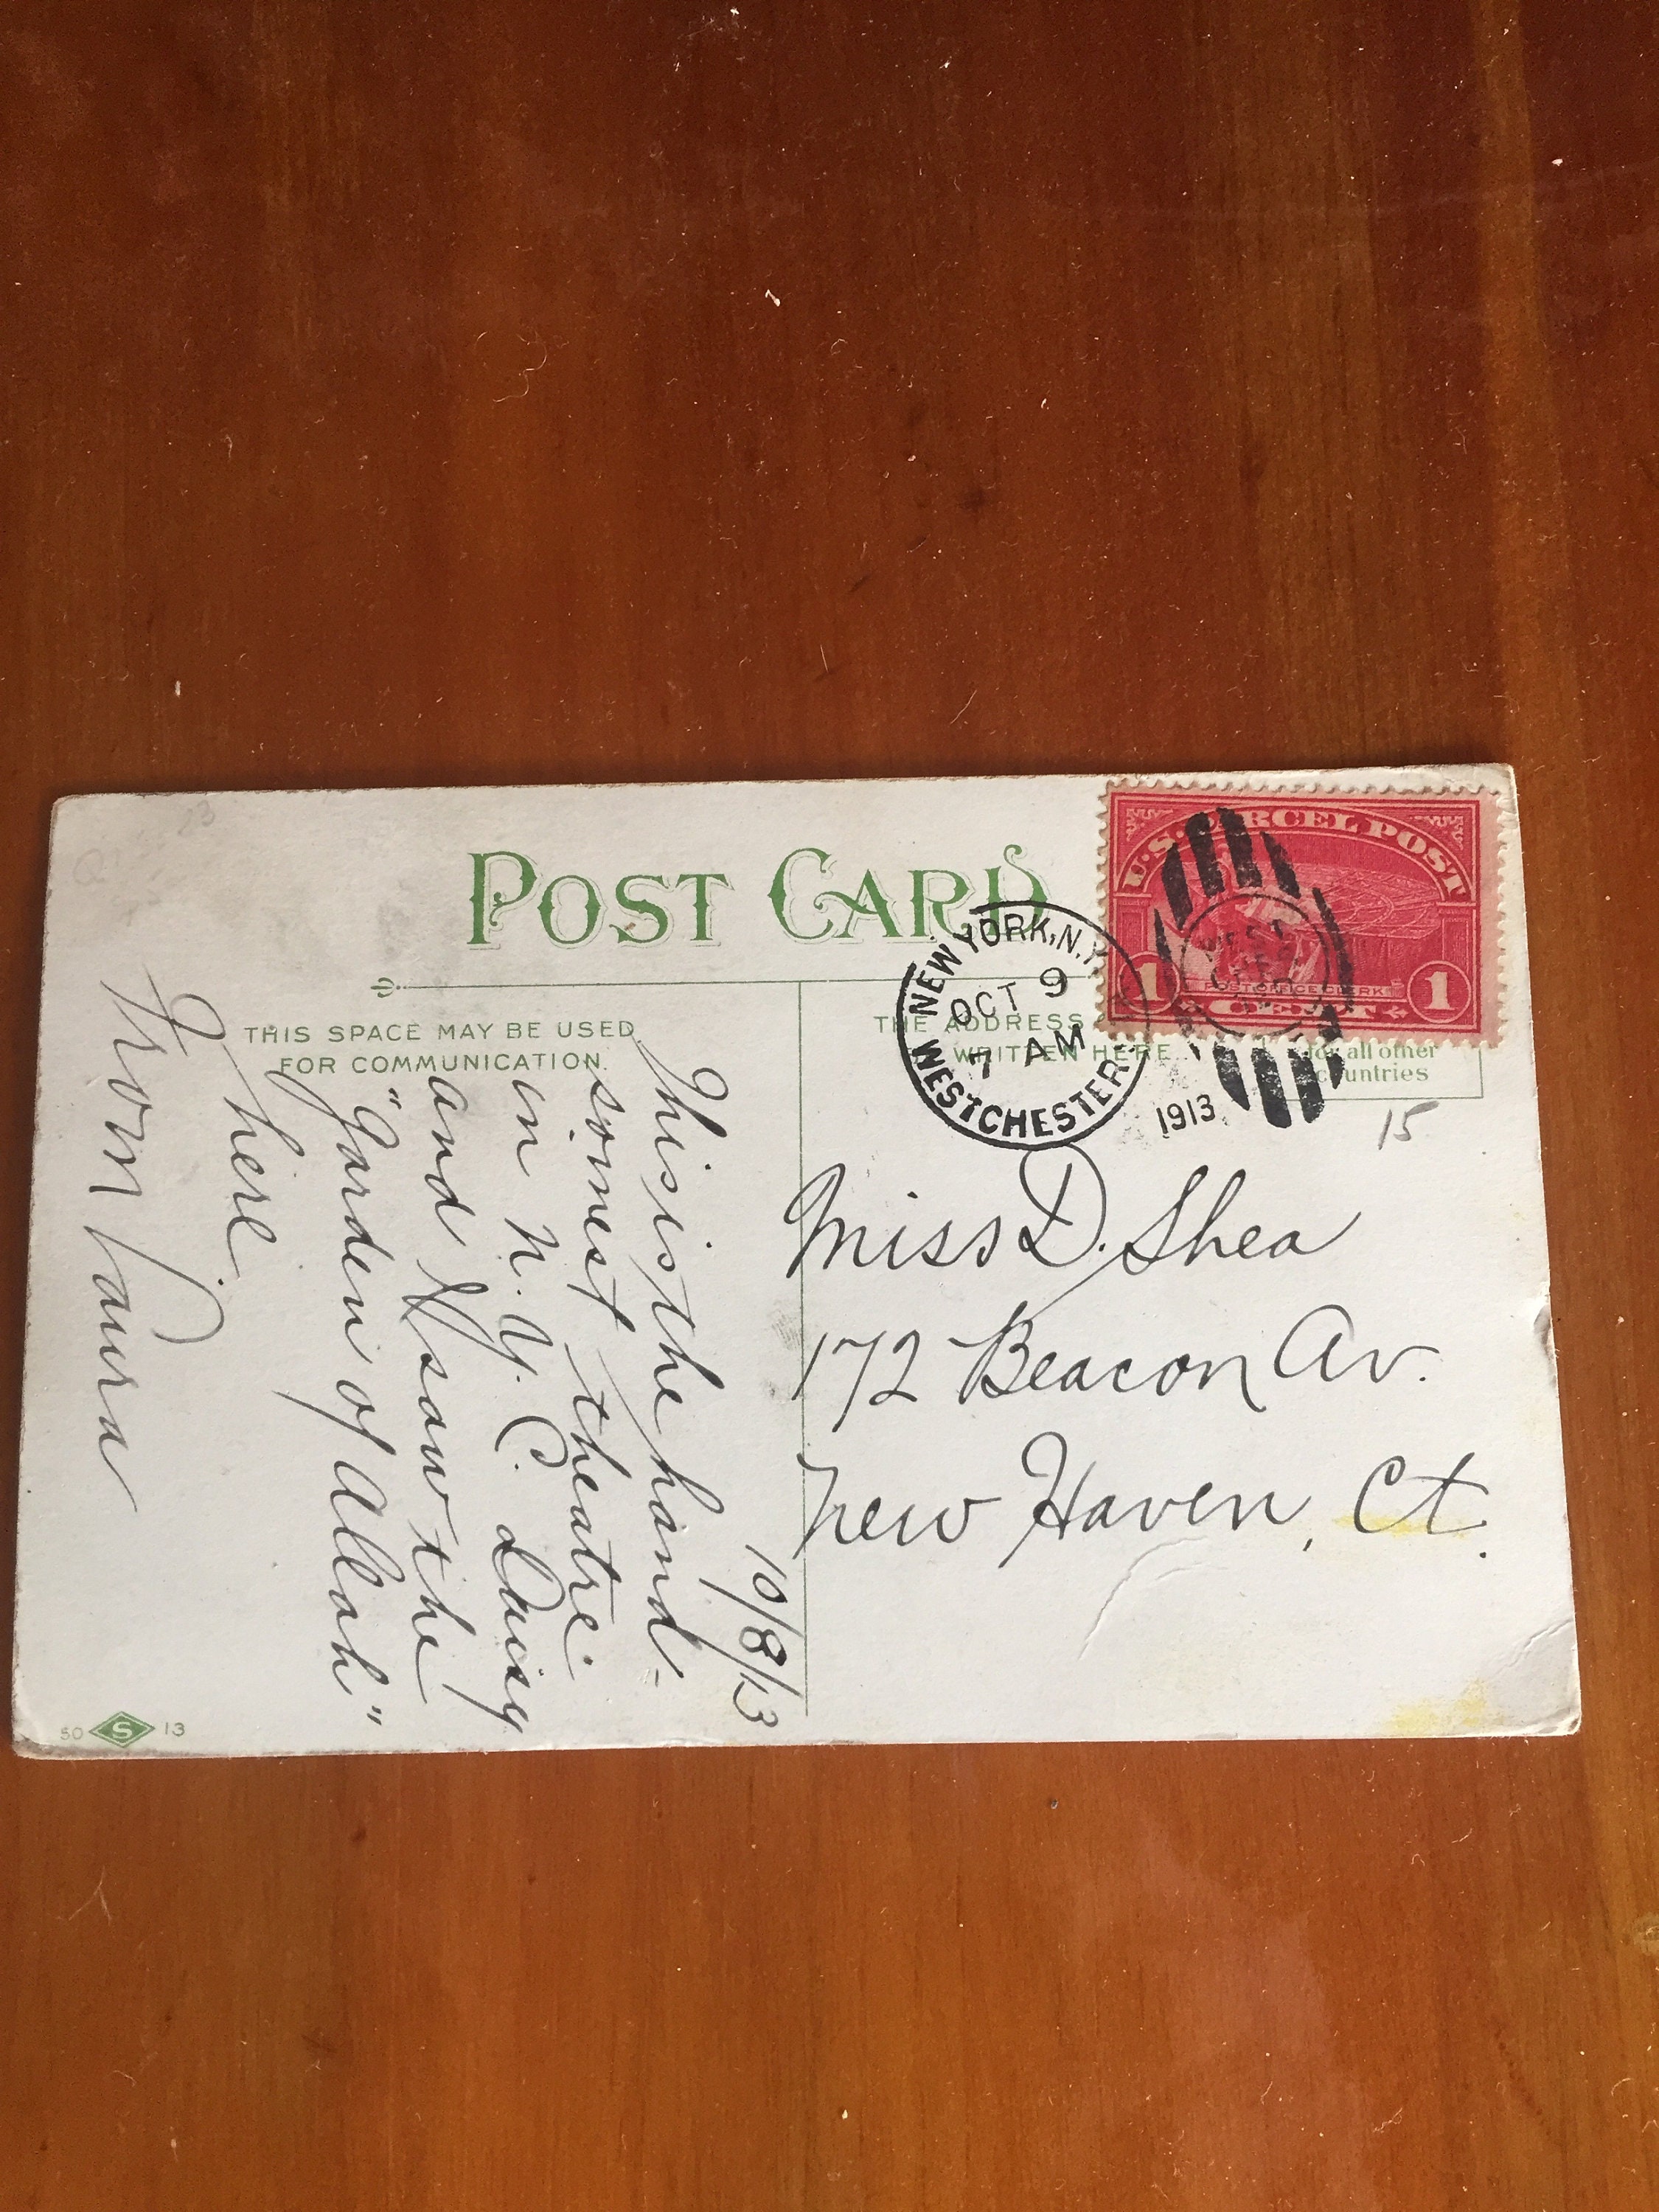 POST CARD
THIS SPACE MAY BE USED
FOR COMMUNICATION.
THE ADDRESS
WRITTEN HERE.
for all other
countries
U.S. PARCEL POST
1 POST OFFICE CLERK 1
CENT
NEW YORK, N.Y.
OCT 9
7 AM
1913
WESTCHESTER
15
Miss D. Shea
172 Beacon Av.
New Haven, Ct.
10/8/13
This is the hand-
somest theatre
in N.Y.C. Daisy
and I saw the
"Garden of Allah"
here.
From Laura
50 S 13
23